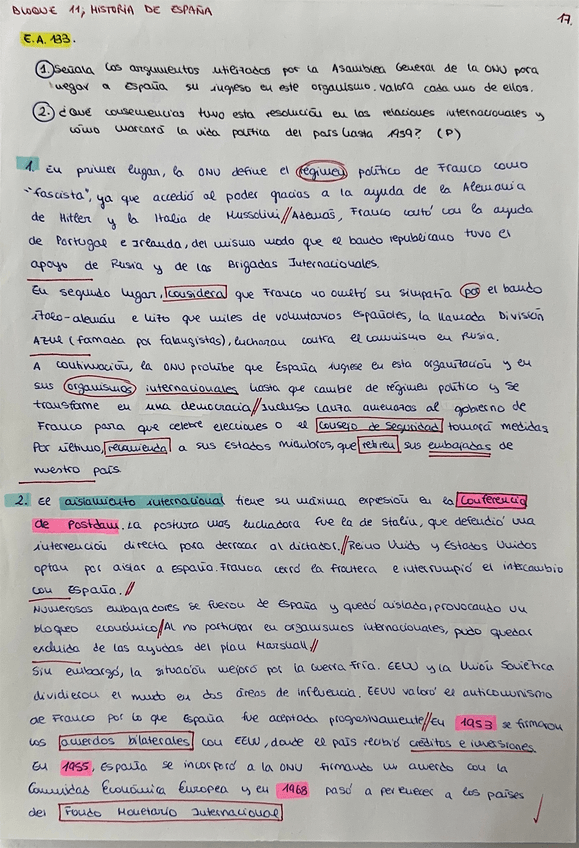 BLOQUE 11; HISTORIA DE ESPAÑA
17.
E.A. 133.
1. Señala los argumentos utilizados por la Asamblea General de la ONU para
negar a España su ingreso en este organismo. Valora cada uno de ellos.
2. ¿Qué consecuencias tuvo esta resolución en las relaciones internacionales y
cómo marcará la vida política del país hasta 1959? (P)
1. En primer lugar, la ONU define el régimen político de Franco como
"fascista", ya que accedió al poder gracias a la ayuda de la Alemania
de Hitler y la Italia de Mussolini // Además, Franco contó con la ayuda
de Portugal e Irlanda, del mismo modo que el bando republicano tuvo el
apoyo de Rusia y de las Brigadas Internacionales.
En segundo lugar, considera que Franco no ometó su simpatía por el bando
ítalo-alemán e hizo que miles de voluntarios españoles, la llamada División
AZUL (famada por falangistas), lucharan contra el comunismo en Rusia.
A continuación, la ONU prohíbe que España ingrese en esta organización y en
sus organismos internacionales hasta que cambie de régimen político y se
transforme en una democracia // Incluso lanza amenazas al gobierno de
Franco para que celebre elecciones o el Consejo de Seguridad tomará medidas
Por último, recomienda a sus Estados miembros, que retiren sus embajadas de
nuestro país.
2. El aislamiento internacional tiene su máxima expresión en la Conferencia
de Postdam. La postura más luchadora fue la de Stalin, que defendió una
intervención directa para derrocar al dictador. // Reino Unido y Estados Unidos
optan por aislar a España. Francia cerró la frontera e interrumpió el intercambio
con España. //
Numerosos embajadores se fueron de España y quedó aislada, provocando un
bloqueo económico / Al no participar en organismos internacionales, pudo quedar
excluida de las ayudas del plan Marshall //
Sin embargo, la situación mejoró por la Guerra Fría. EEUU y la Unión Soviética
dividieron el mundo en dos áreas de influencia. EEUU valoró el anticomunismo
de Franco por lo que España fue aceptada progresivamente // En 1953 se firmaron
los acuerdos bilaterales con EEUU, donde el país recibió créditos e inversiones.
En 1955, España se incorporó a la ONU firmando un acuerdo con la
Comunidad Económica Europea y en 1968 pasó a pertenecer a los países
del Fondo Monetario Internacional